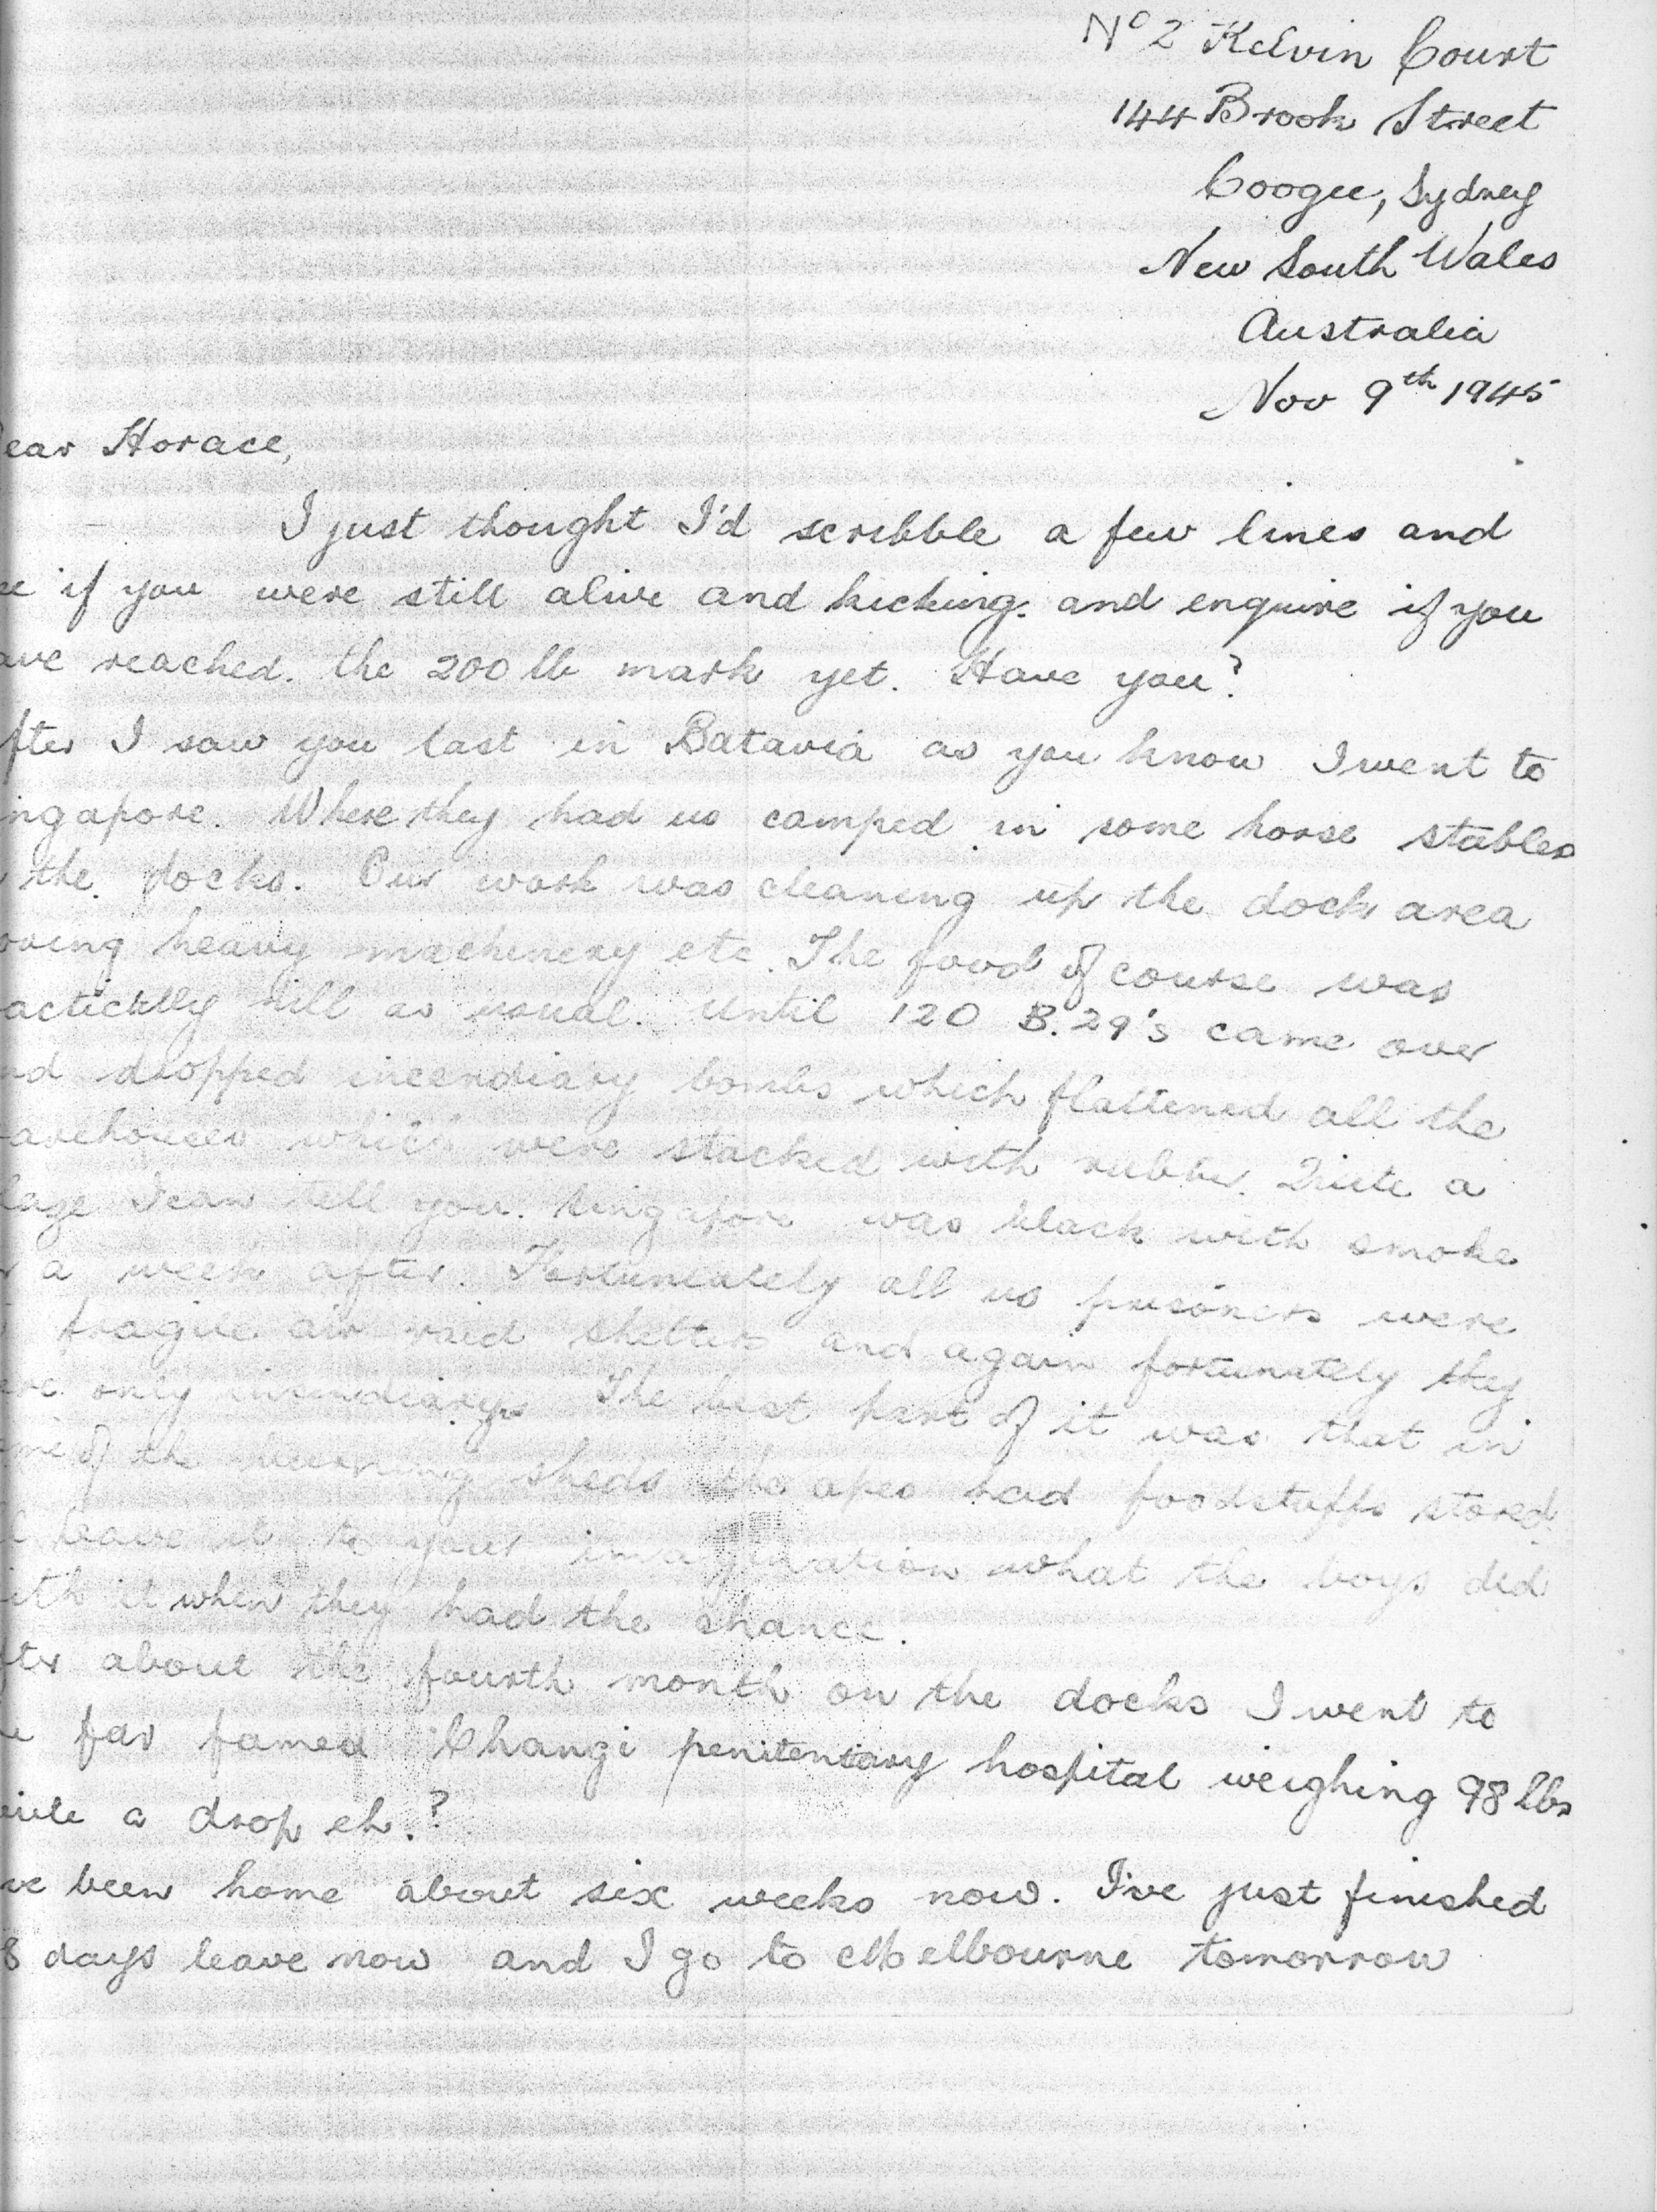 Nº 2 Kelvin Court
144 Brook Street
Coogee, Sydney
New South Wales
Australia
Nov 9th 1945
ear Horace,
I just thought I'd scribble a few lines and
ee if you were still alive and kicking. and enquire if you
ave reached. the 200 lb mark yet. Have you?
fter I saw you last in Batavia as you know I went to
ingapore. Where they had us camped in some horse stables
the docks. Our work was cleaning up the dock area
oving heavy machinery etc. The food of course was
nill as usual. Until 120 B.29's came over
nd dropped incendiary bombs which flattened all the
arehouses which were stacked with rubber. Quite a
laze I can tell you. Singapore was black with smoke
r a week after. Fortunately all us prisoners were
fragile air raid shelters and again fortunately they
ere only incendiarys The best part of it was that in
ome of the burning sheds the apes had foodstuffs stored.
l leave it to your imagination what the boys did
ith it when they had the chance.
fter about the fourth month on the docks I went to
e far famed Changi penitentary hospital weighing 98 lbs
uite a drop eh.?
ve been home about six weeks now. I've just finished
8 days leave now and I go to Melbourne tomorrow